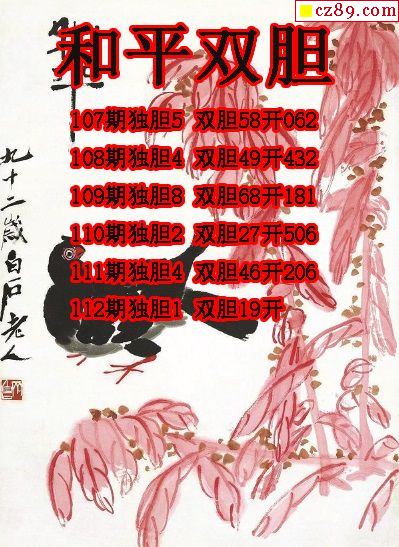 cz89.com
和平双胆
107期独胆5 双胆58开062
108期独胆4 双胆49开432
109期独胆8 双胆68开181
110期独胆2 双胆27开506
111期独胆4 双胆46开206
112期独胆1 双胆19开
九十二岁白石老人